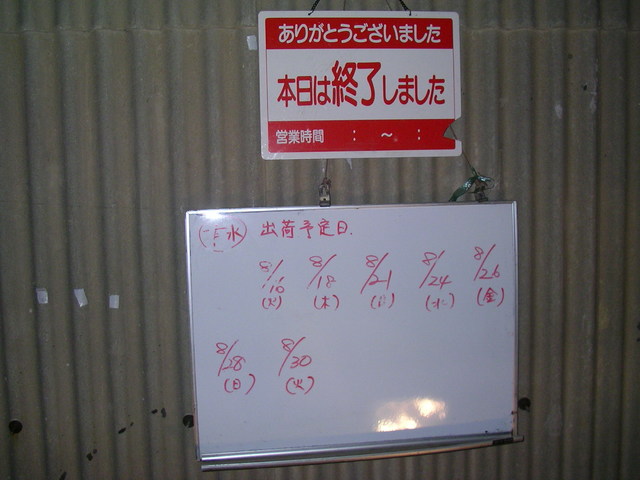 ありがとうございました
本日は終了しました
営業時間 : ～ :
(幸水) 出荷予定日.
8/16 8/18 8/21 8/24 8/26
(火) (木) (日) (水) (金)
8/28 8/30
(日) (火)